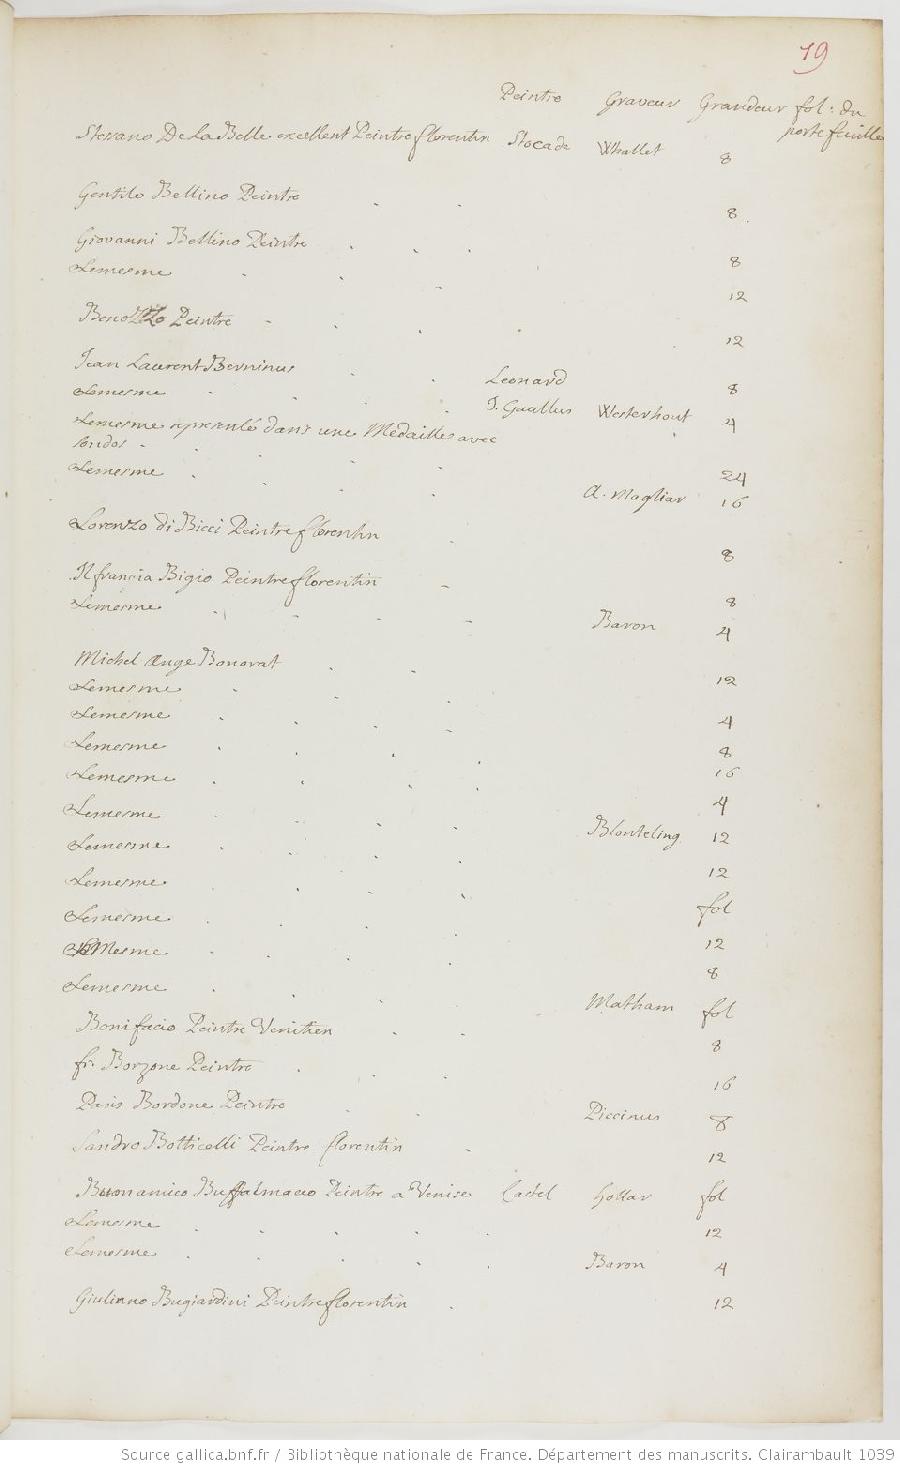 79
Peintre Graveur Grandeur fol: du
porte feuille
Stevano De la Belle excellent Peintre florentin Stocade Whallet 8
Gentilo Bellino Peintre 8
Giovanni Bellino Peintre 8
Lemesme 12
Benozzo Peintre 12
Jean Laurent Berninus Leonard 8
Lemesme J. Guallus Westerhout 4
Lemesme representé dans une Medailles avec
24
Lemesme A. Magliar 16
Lorenzo di Bicci Peintre florentin 8
Il francia Bigio Peintre florentin 8
Lemesme Baron 4
Michel Ange Bonorat 12
Lemesme 4
Lemesme 8
Lemesme 16
Lemesme 4
Lemesme Blonteling 12
Lemesme 12
Lemesme fol
Lemesme 12
le Mesme 8
Lemesme Matham fol
Bonifacio Peintre Venitien 8
fr. Borzone Peintre 16
Paris Bordone Peintre Piccinus 8
Sandro Botticelli Peintre florentin 12
Buonamico Buffalmaco Peintre a Venise Castel hollar fol
Lemesme 12
Lemesme Baron 4
Giuliano Bugiardini Peintre florentin 12
Source gallica.bnf.fr / Bibliothèque nationale de France. Département des manuscrits. Clairambault 1039